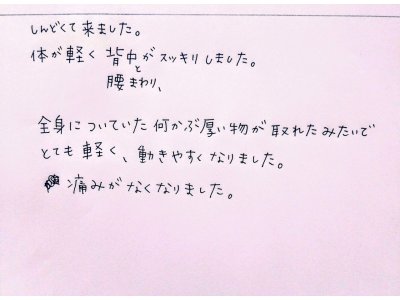 しんどくて来ました。
体が軽く 背中がスッキリしました。
と
腰まわり、
全身についていた何かぶ厚い物が取れたみたいで
とても軽く、動きやすくなりました。
痛みがなくなりました。